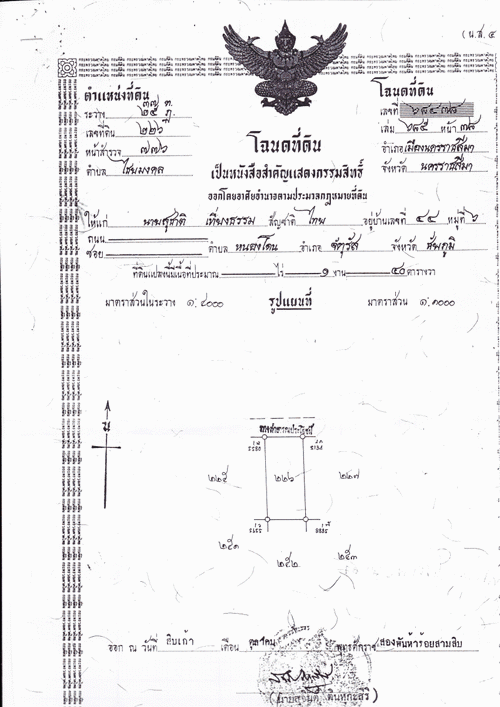 (น.ส. ๔
ตำแหน่งที่ดิน
ระวาง
เลขที่ดิน ๒๒๖
หน้าสำรวจ ๗๗๖
ตำบล ไชยมงคล
โฉนดที่ดิน
เลขที่
เล่ม ๖๘๕ หน้า ๓๘
อำเภอ เมืองนครราชสีมา
จังหวัด นครราชสีมา
โฉนดที่ดิน
เป็นหนังสือสำคัญแสดงกรรมสิทธิ์
ออกโดยอาศัยอำนาจตามประมวลกฎหมายที่ดิน
ให้แก่ นายสุชาติ เที่ยงธรรม สัญชาติ ไทย อยู่บ้านเลขที่ ๔๔ หมู่ที่ ๖
ถนน
ซอย ตำบล หนองโดน อำเภอ จัตุรัส จังหวัด ชัยภูมิ
ที่ดินแปลงนี้มีเนื้อที่ประมาณ ไร่ ๑ งาน ๔๐ ตารางวา
มาตราส่วนในระวาง ๑:๔๐๐๐ รูปแผนที่ มาตราส่วน ๑:๑๐๐๐
น
ทางสาธารณประโยชน์
๒๒๕ ๒๒๖ ๒๒๗
๒๕๑ ๒๕๒ ๒๕๓
ออก ณ วันที่ สิบเก้า เดือน ตุลาคม พุทธศักราช สองพันห้าร้อยสามสิบ